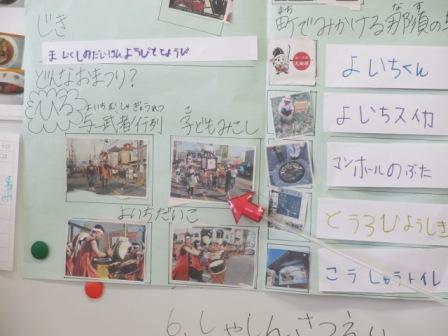 じき
まいくしのだいいんようびとどようび
どんなおまつり?
ひる
よいちむしゃぎょうれつ
与一武者行列
子どもみこし
よいちだいこ
町でみかける那須の与
よいちくん
よいちスイカ
マンホールのふた
とうろひょうしき
こうしゅうトイレ
6.しゃしんさつえい